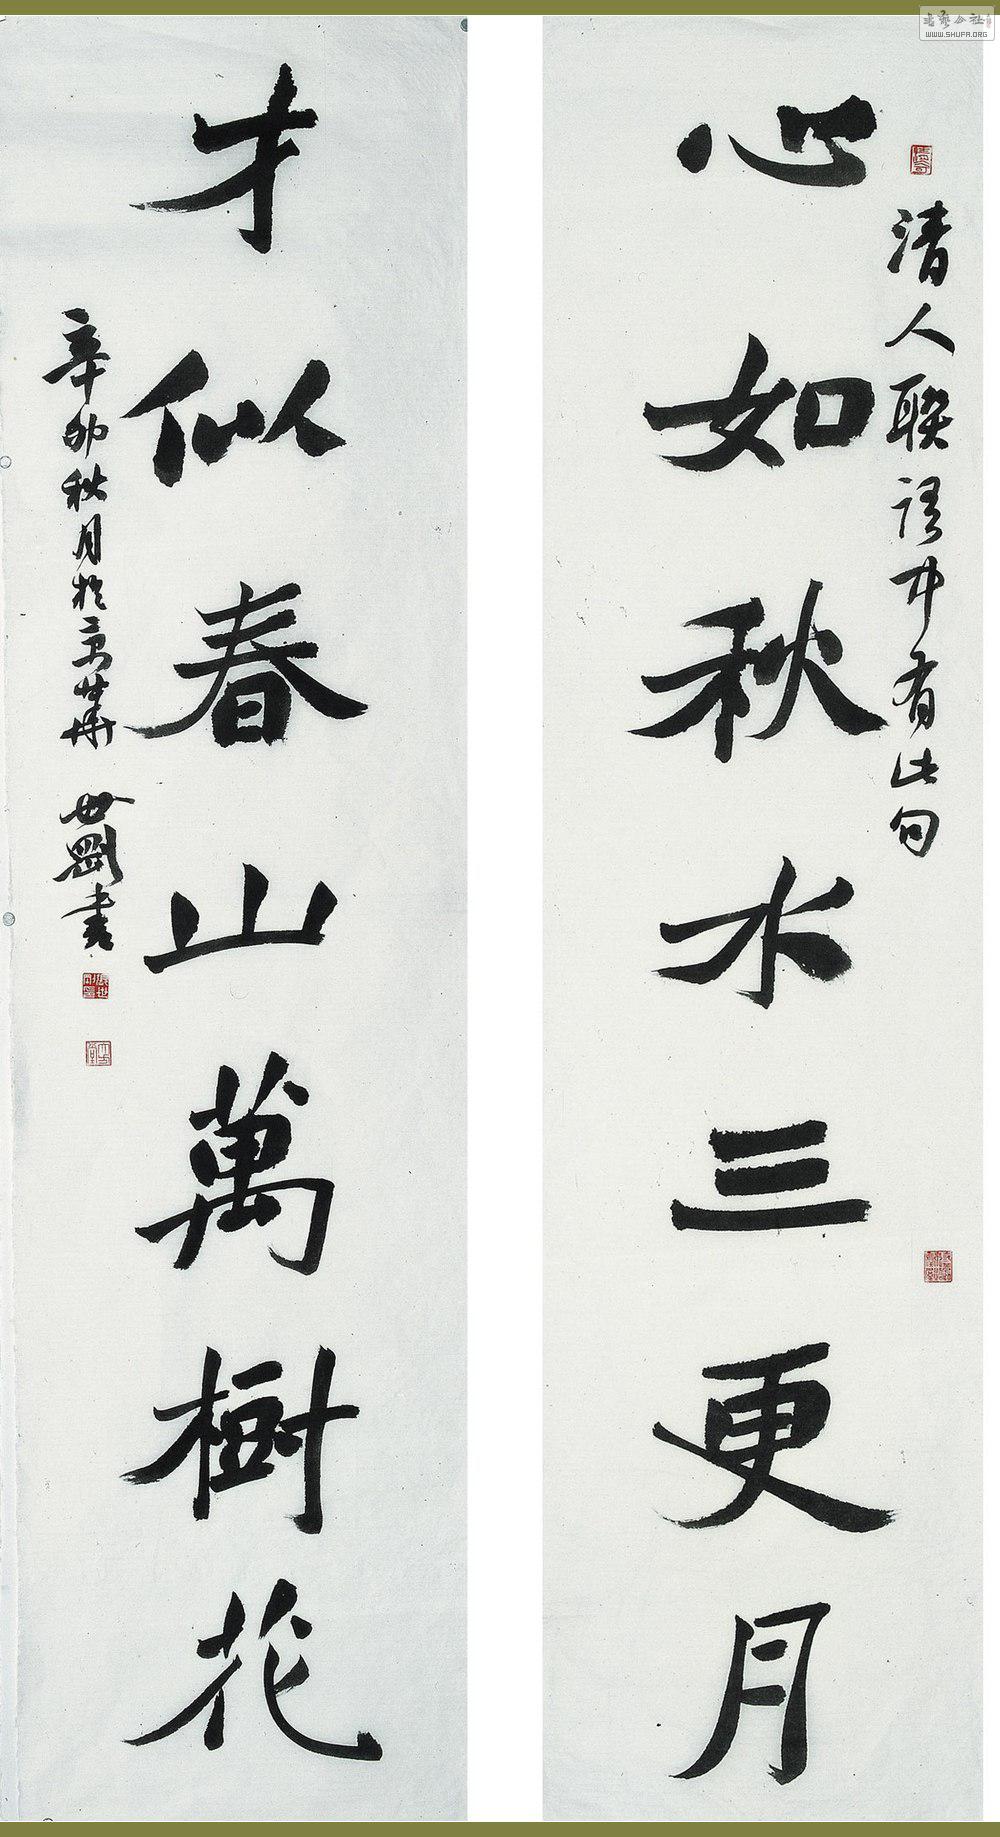 清人聯語中有此句
心如秋水三更月
才似春山萬樹花
辛卯秋月於京華 世剛書
書藝公社
WWW.SHUFA.ORG